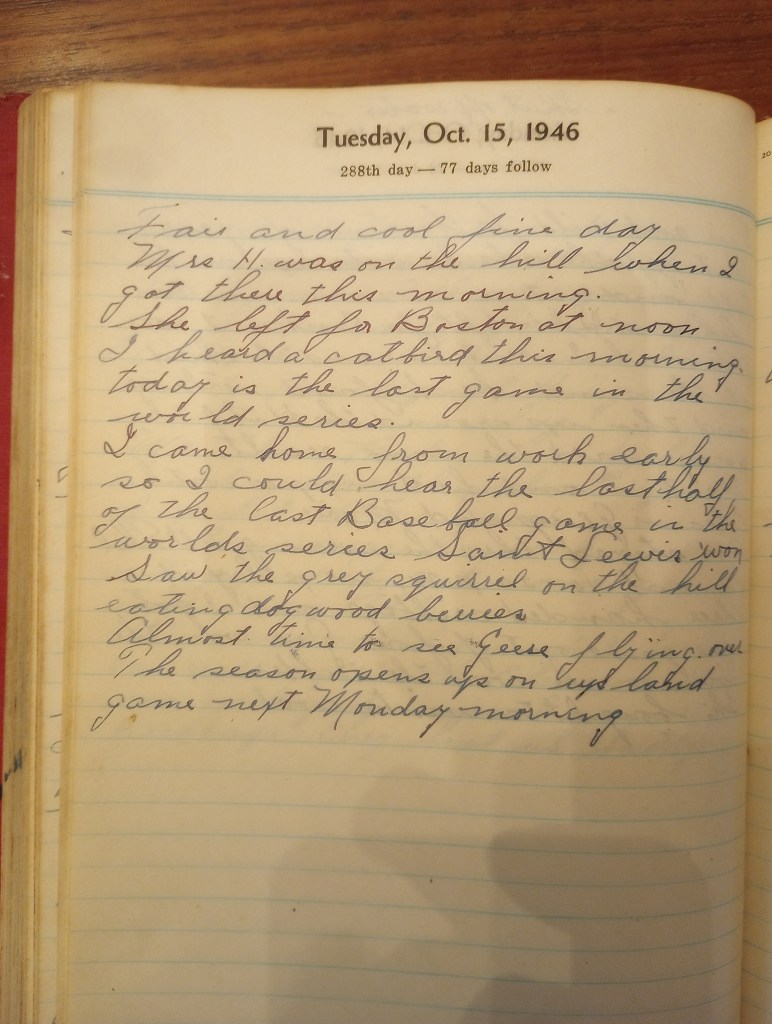 Tuesday, Oct. 15, 1946
288th day — 77 days follow
Fair and cool fine day
Mrs H. was on the hill when I
got there this morning.
She left for Boston at noon
I heard a catbird this morning.
today is the last game in the
world series.
I came home from work early
so I could hear the last half
of the last Baseball game in the
worlds series Saint Lewis won
Saw the grey squirrel on the hill
eating dogwood berries
Almost time to see Geese flying over
The season opens up on up land
game next Monday morning